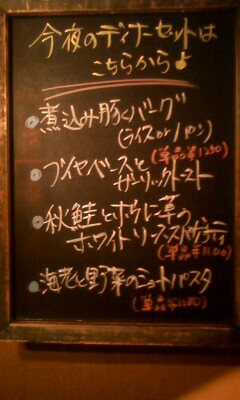 今夜のディナーセットは
こちらから♪
煮込み豚バーグ
(ライスorパン)
(単品¥1250)
ブイヤベースと
ガーリックトースト
秋鮭とほうれん草の
ホワイトソーススパゲティ
(単品¥1100)
海老と野菜のショートパスタ
(単品¥1100)